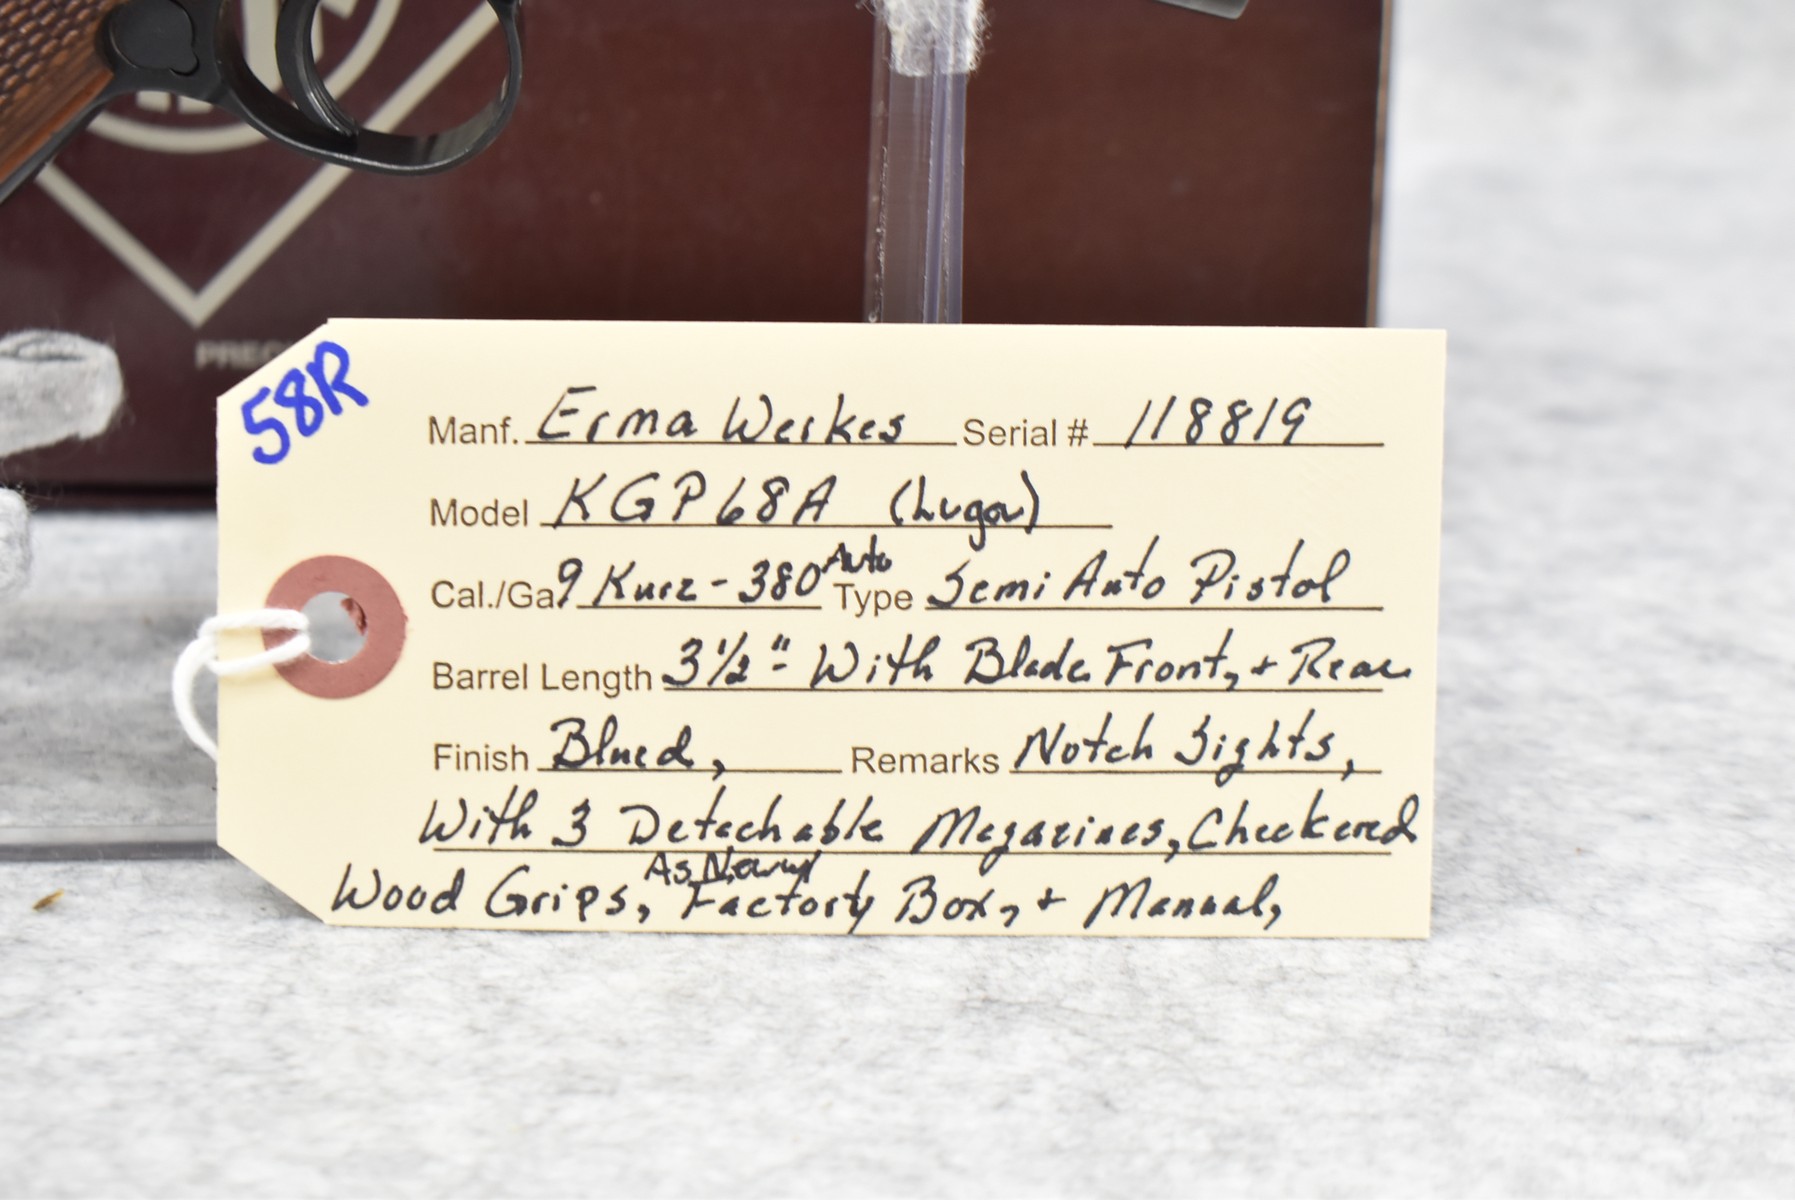 PREC
58R
Manf. Erma Werkes Serial # 118819
Model KGP68A (Lugar)
Cal./Ga 9 Kurz - 380 Auto Type Semi Auto Pistol
Barrel Length 3 1/2" With Blade Front, + Rear
Finish Blued, Remarks Notch Sights,
With 3 Detachable Magazines, Checkered
Wood Grips, As New Factory Box, + Manual,